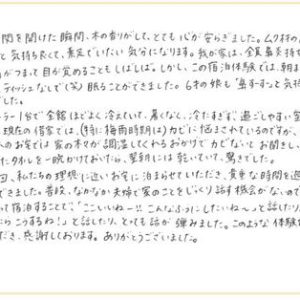 関を開けた瞬間、木の香りがして、とても心が安らぎました。ムク材の
と気持ち良くて、素足でいたい気分になります。我が家は、全員鼻炎持
がつまって目が覚めることもしばしば。しかし、この宿泊体験では、朝ま
ティッシュなしで(笑)眠ることができました。6才の娘も「鼻すーすっと気持
した。
ーラー1台で全館ほどよく冷えていて、暑くなく、冷たすぎず過ごしやすい室
現在の借家では、(特に梅雨時期は)カビに悩まされているのですが、
のお宅では家の木々が調湿してくれるおかげでカビないとお聞きし、
たタオルを一晩かけておいたら、翌朝には乾いていて、驚きでした。
回、私たちの理想に近いお宅に泊まらせていただき、貴重な時間を過
できました。普段、なかなか夫婦で家のことをじっくり話す機会がないので
って宿泊することで、「こういいねー!!こんなふうにしたいねー」と話したり、
らこうするね!」と話したり、とっても話が弾みました。このような体験
だき、感謝しております。ありがとうございました。